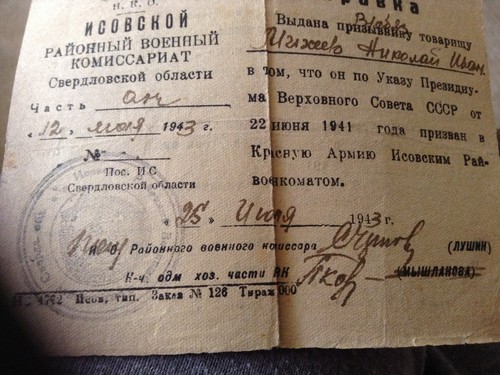 Н. К. О.
ИСОВСКОЙ
РАЙОННЫЙ ВОЕННЫЙ
КОМИССАРИАТ
Свердловской области
Часть
„12 мая 1943 г.
№
Пос. ИС
Свердловской области
Выдана призывнику товарищу
Николай Иван.
в том, что он по Указу Президиу-
ма Верховного Совета СССР от
22 июня 1941 года призван в
Красную Армию Исовским Рай-
военкоматом.
„25 1943 г.
Районного военного комиссара (ЛУШИН)
Н-ч. адм хоз. части ВК (МЫШЛАНОВА)
4762 Исов, тип. Заказ № 126 Тираж 000